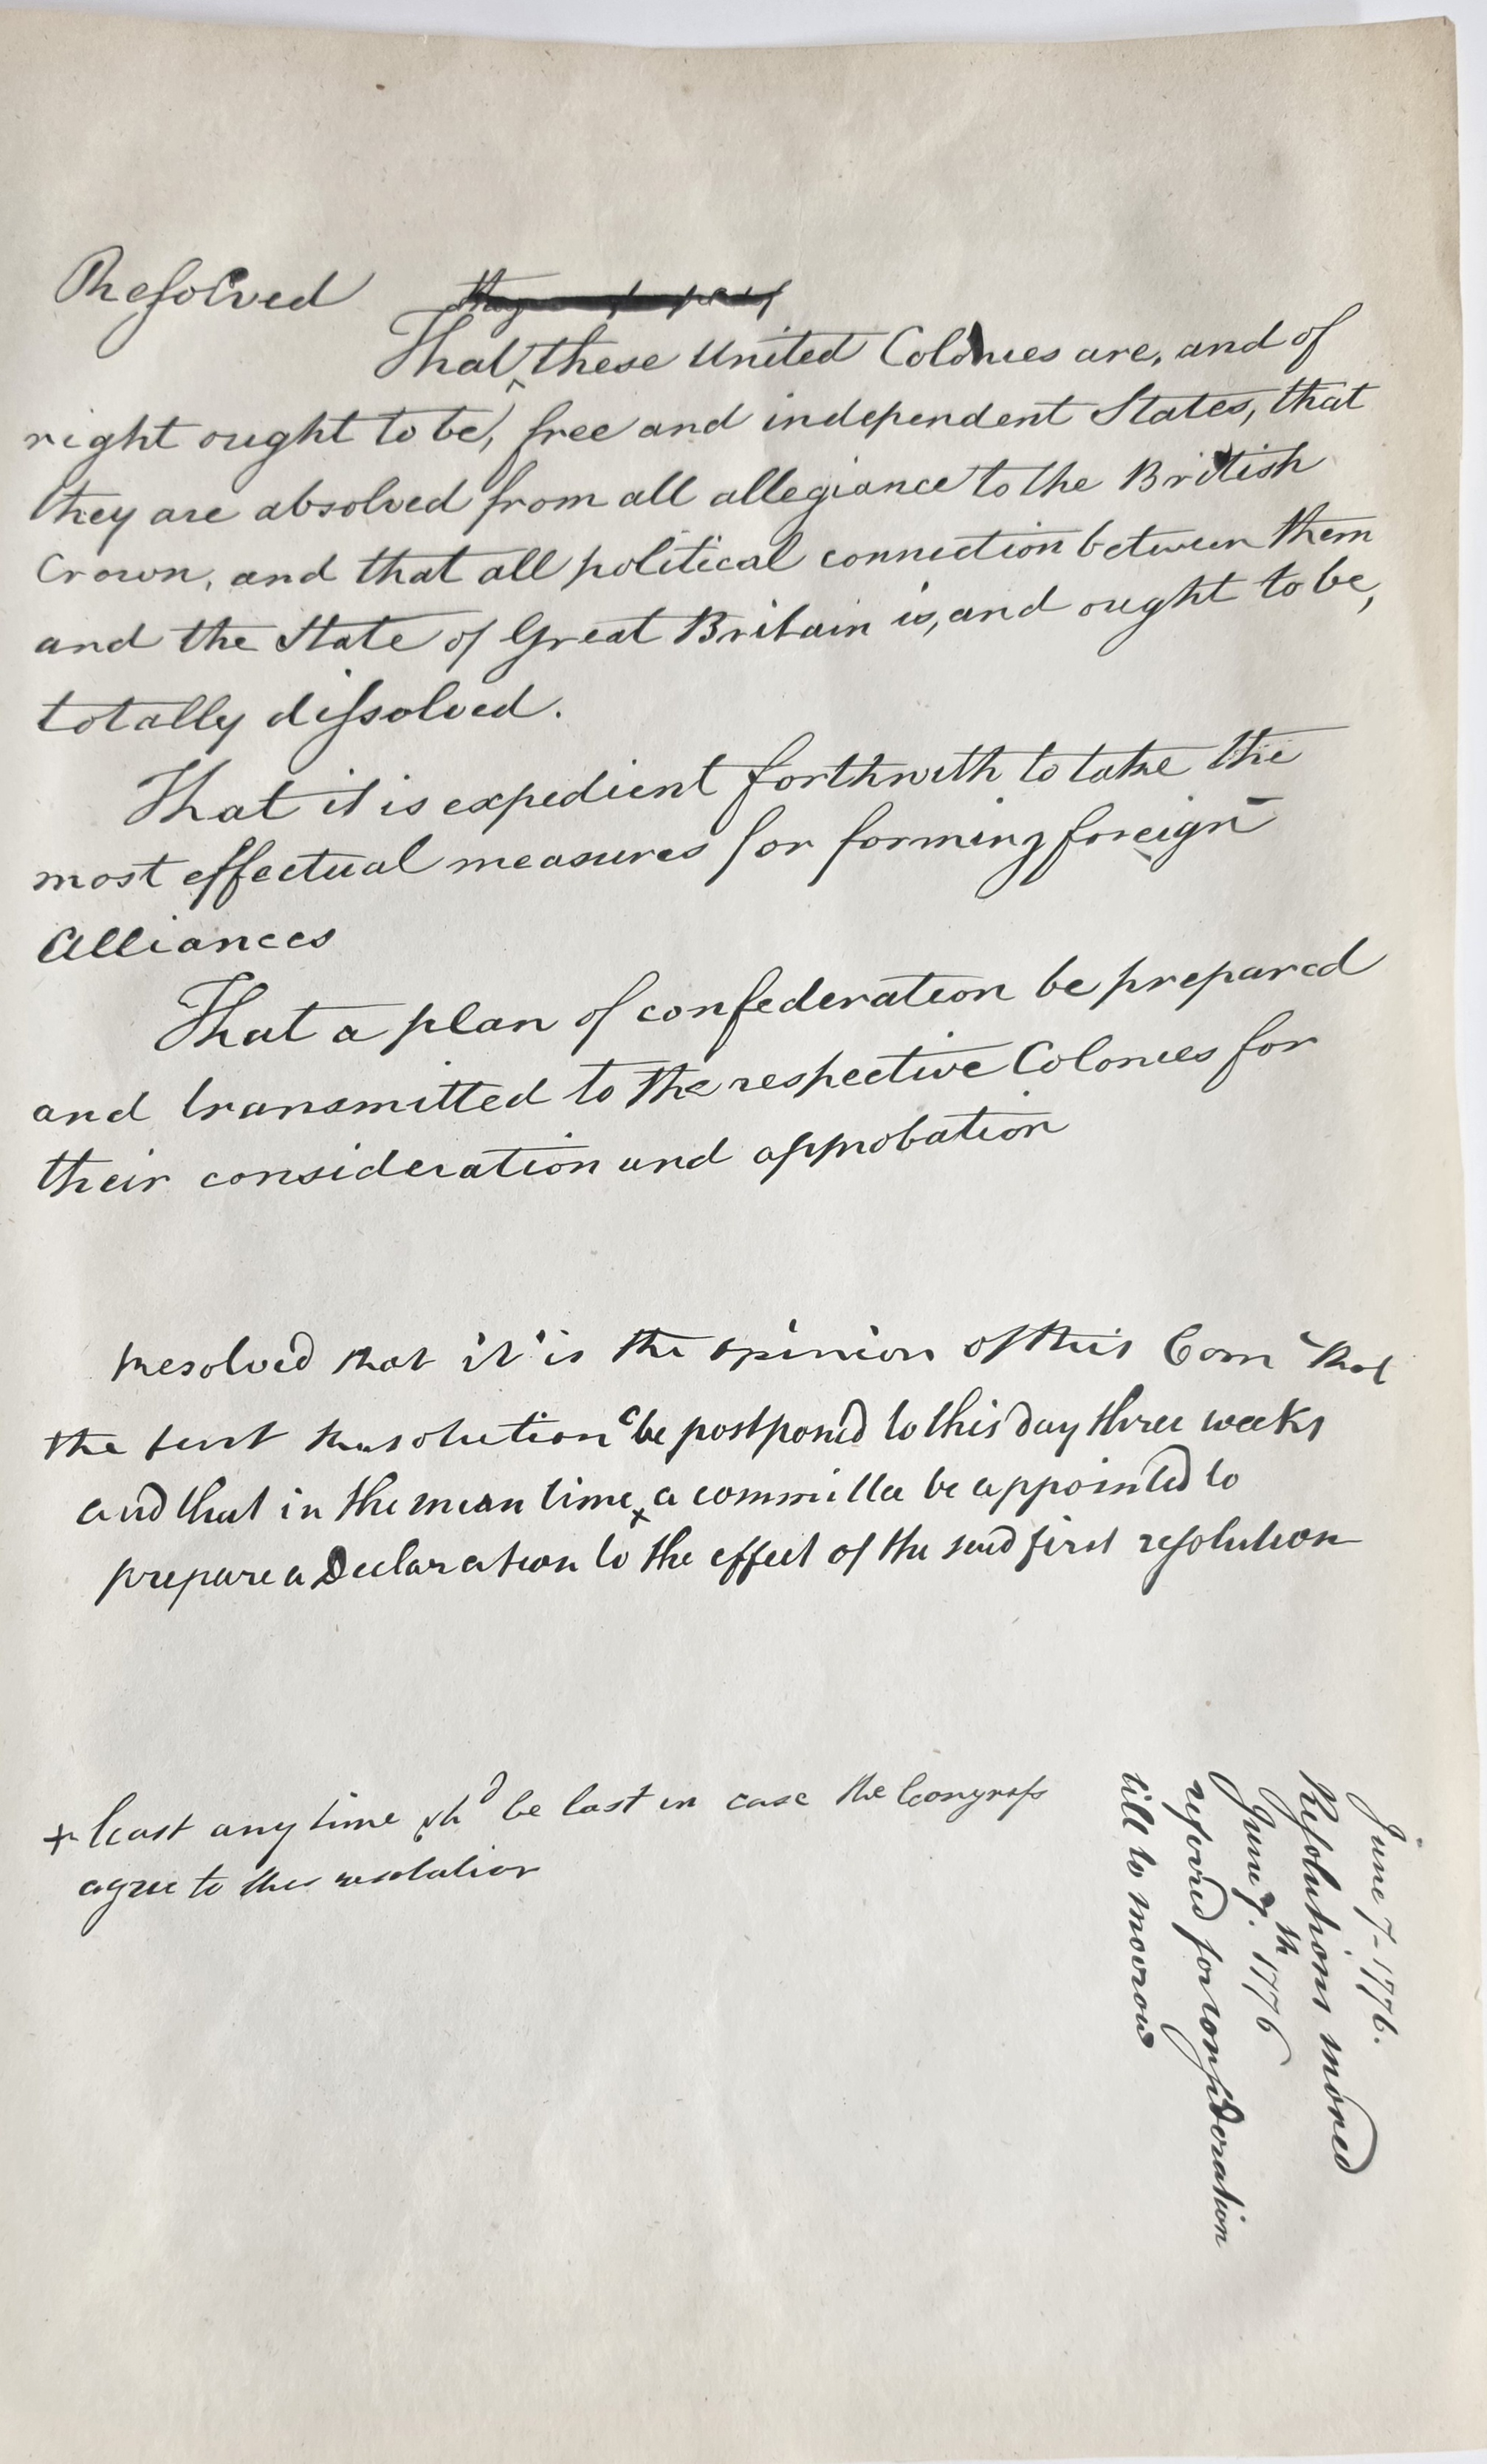 Resolved
That these United Colonies are, and of
right ought to be, free and independent States, that
they are absolved from all allegiance to the British
Crown, and that all political connection between them
and the State of Great Britain is, and ought to be,
totally dissolved.
That it is expedient forthwith to take the
most effectual measures for forming foreign
Alliances
That a plan of confederation be prepared
and transmitted to the respective Colonies for
their consideration and approbation
Resolved that it is the opinion of this Com that
the first Resolution be postponed to this day three weeks
and that in the mean time + a committee be appointed to
prepare a Declaration to the effect of the said first resolution
+ least any time shd be lost in case the Congress
agree to this resolution
June 7 - 1776.
Resolutions moved
June 7th. 1776
referred for consideration
till to morrow